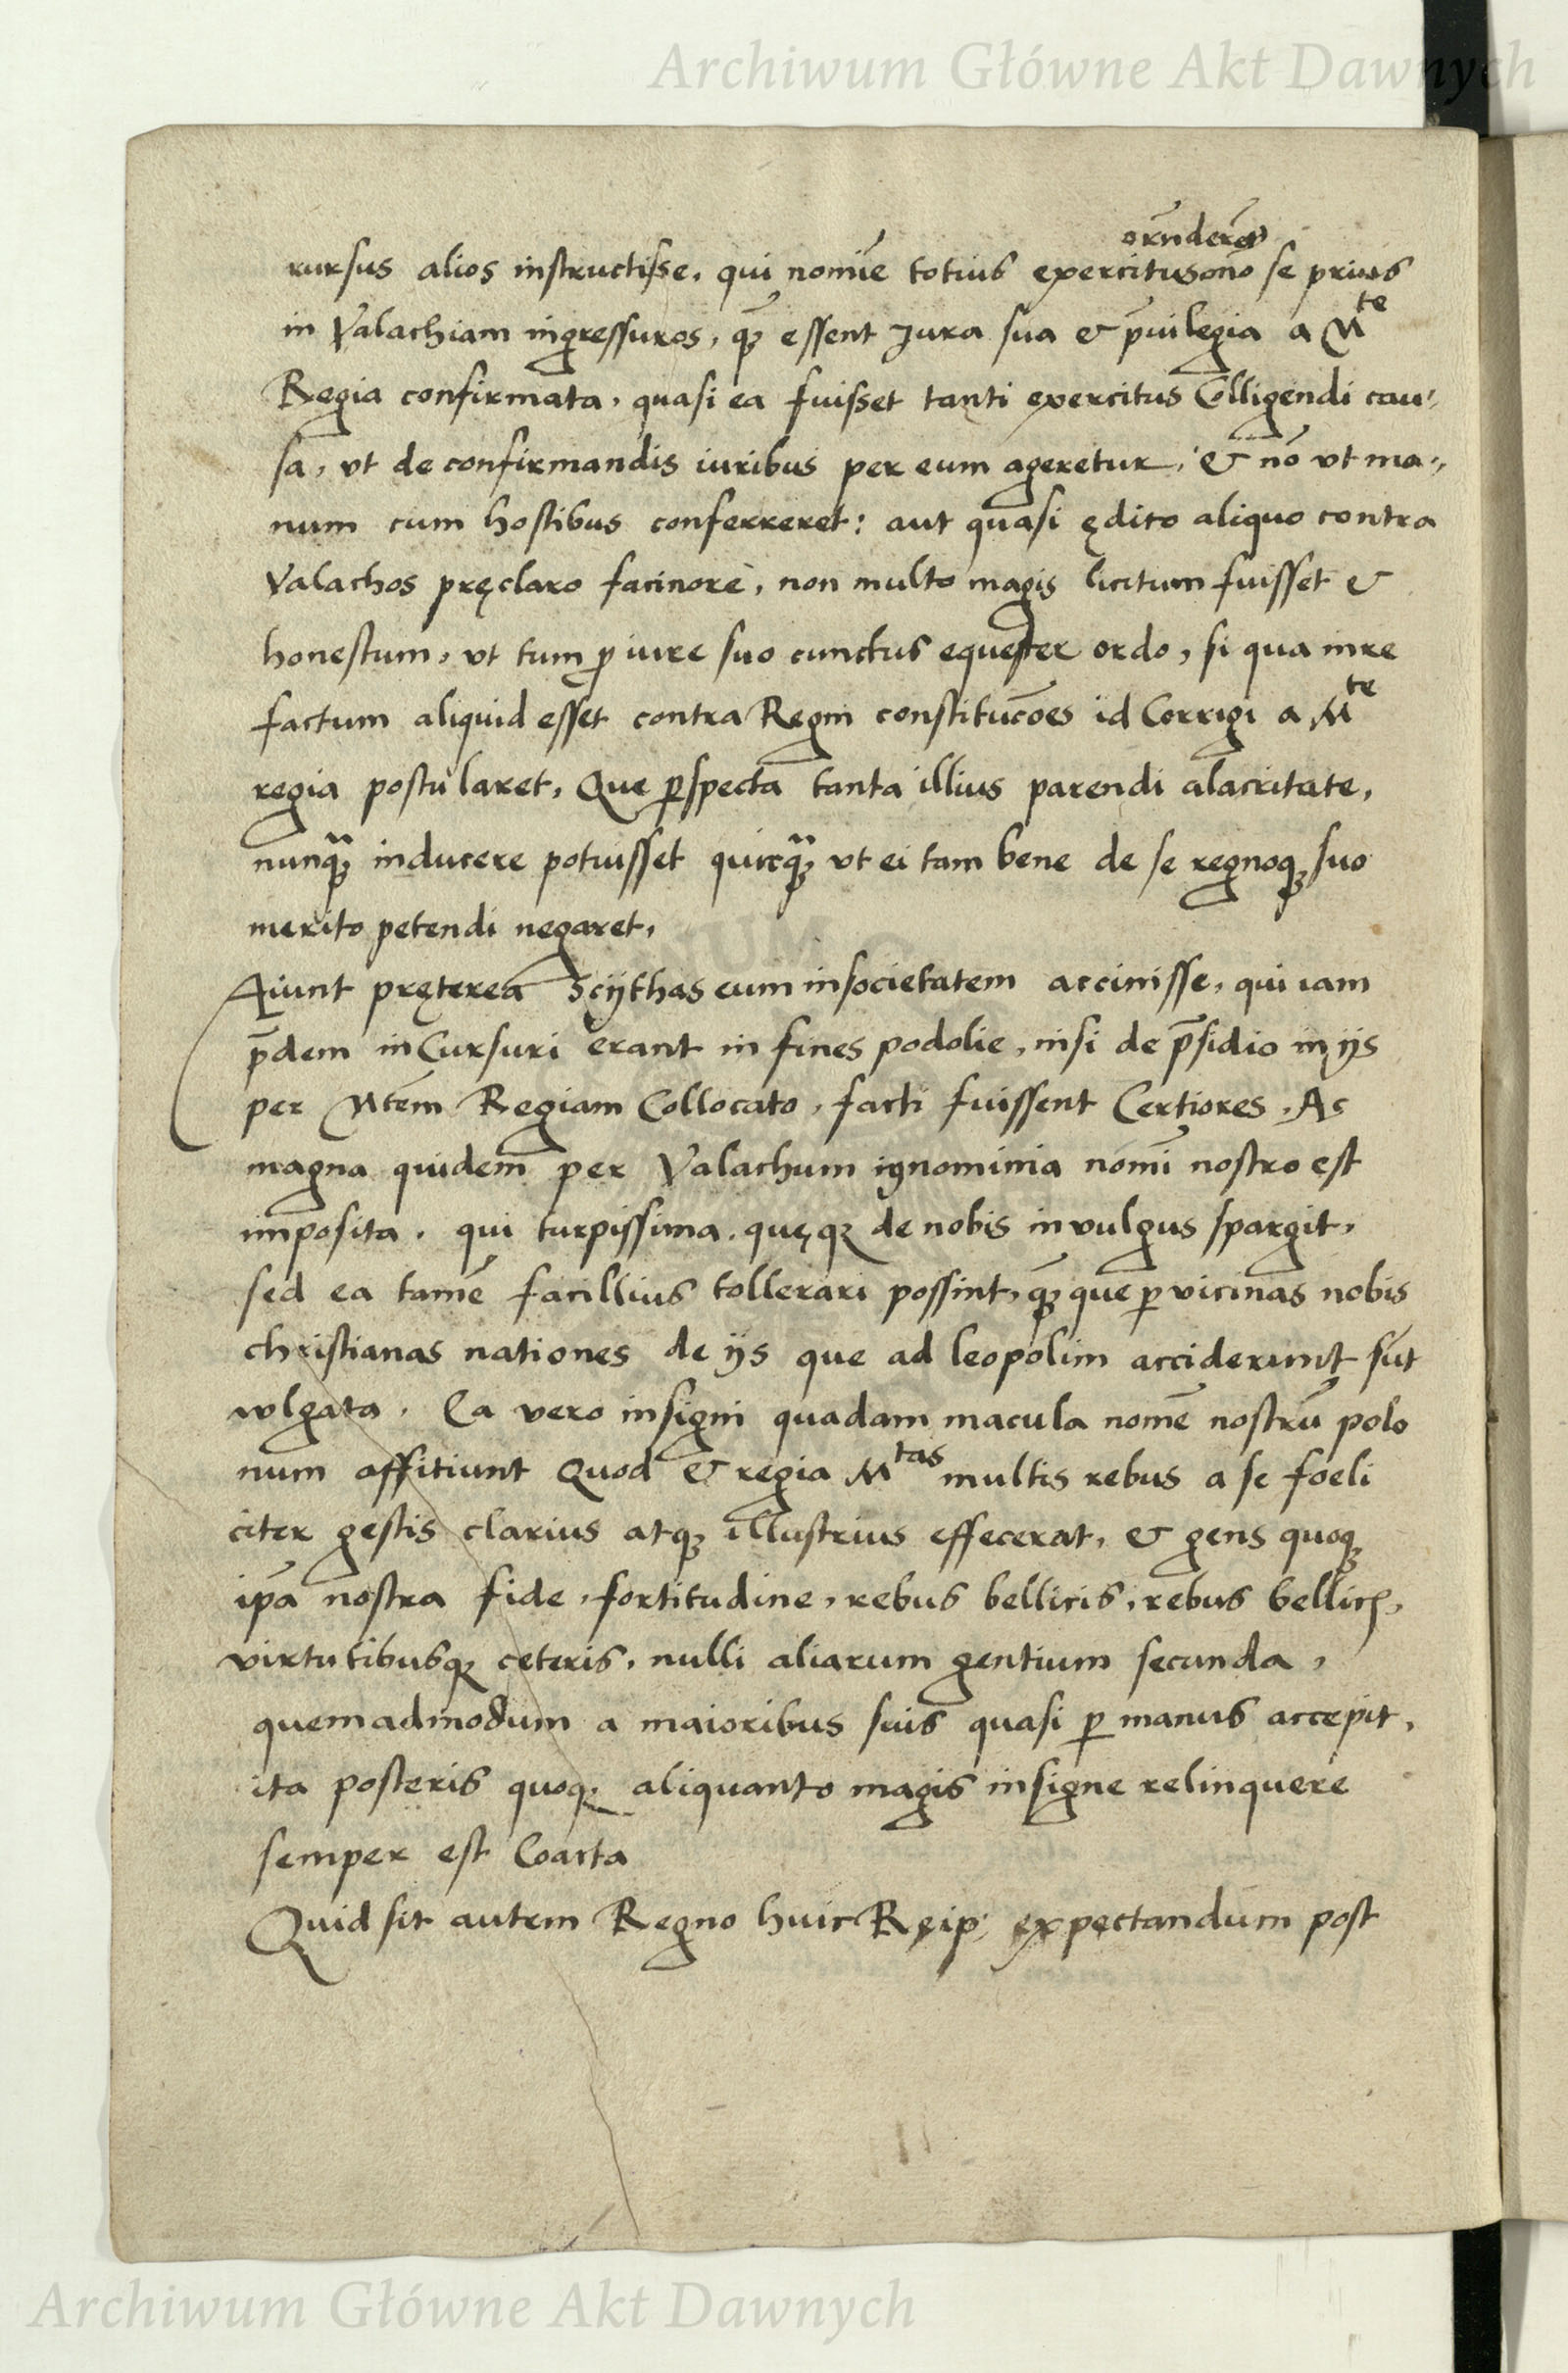 Archiwum Główne Akt Dawnych
rursus alios instructisse, qui nomīe totius exercitus se prius
in Valachiam ingressuros, qꝫ̃ essent Jura sua & p̄uilegia a Mte
Regia confirmata, quasi ea fuisset tanti exercitus Colligendi cau-
sa, vt de confirmandis iuribus per eum ageretur, & nō vt ma-
num cum hostibus conferreret: aut quasi ędito aliquo contra
Valachos pręclaro facinore, non multo magis licitum fuisset &
honestum, vt tum ꝑ iure suo cunctus equester ordo, si qua in re
factum aliquid esset contra Regni constitucōes id Corrigi a Mte
regia postularet, Que ꝑspecta tanta illius parendi alacritate,
nunqꝫ̃ inducere potuisset quicqꝫ̃ vt ei tam bene de se regnoqꝫ suo
merito petendi negaret,
Aiunt pręterea Scÿthas eum in societatem accinisse, qui iam
p̄dem in Cursuri erant in fines podolie, nisi de p̄sidio in ÿs
per Mtēm Regiam Collocato, facti fuissent Certiores, Ac
magna quidem per Valachum ignominia nomī nostro est
imposita, qui turpissima quęqꝫ de nobis in vulgus spargit,
sed ea tamē facillius tollerari possint, qꝫ̃ que ꝑ vicinas nobis
christianas nationes de ÿs que ad leopolim acciderunt sūt
wlgata. Ea vero insigni quadam macula nomē nostrū polo
num affitiunt Quod & regia Mtas multis rebus a se foeli
citer gestis clarius atqꝫ illustrius effecerat, & gens quoqꝫ
ip̄a nostra fide, fortitudine, rebus bellicis, rebus bellicꝭ,
virtutibusqꝫ ceteris, nulli aliarum gentium secunda,
quemadmodum a maioribus suis quasi ꝑ manus accepit,
ita posteris quoqꝫ aliquanto magis insigne relinquere
semper est Coacta
Quid sit autem Regno huic Reip: expectandum post
Archiwum Główne Akt Dawnych